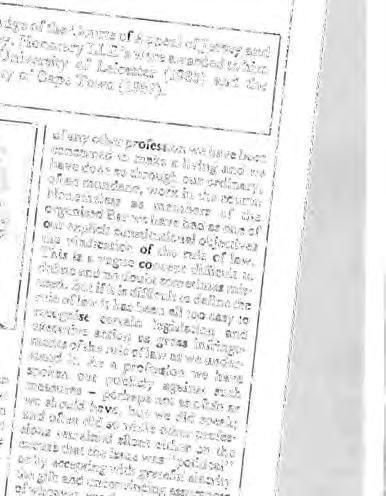 Judge of the Courts of Appeal of Jersey and
Honorary LLD's were awarded to him
University of Leicester (1983) and the
of Cape Town
of any other profession we have been
concerned to make a living and we
have done so through our ordinary,
often mundane, work in the courts.
Nonetheless as members of the
organised Bar we have had as one of
our explicit constitutional objectives
the vindication of the rule of law.
This is a vague concept difficult to
define and no doubt sometimes mis-
used. But if it is difficult to define the
rule of law it has been all too easy to
recognise certain legislation and
executive action as gross infringe-
ments of the rule of law as we under-
stand it. As a profession we have
spoken out publicly against such
measures – perhaps not as often as
we should have, but we did speak;
and often did so while other profes-
sions remained silent either on the
excuse that the issue was "political"
or by accepting with grateful alacrity
the glib and unconvincing assurances